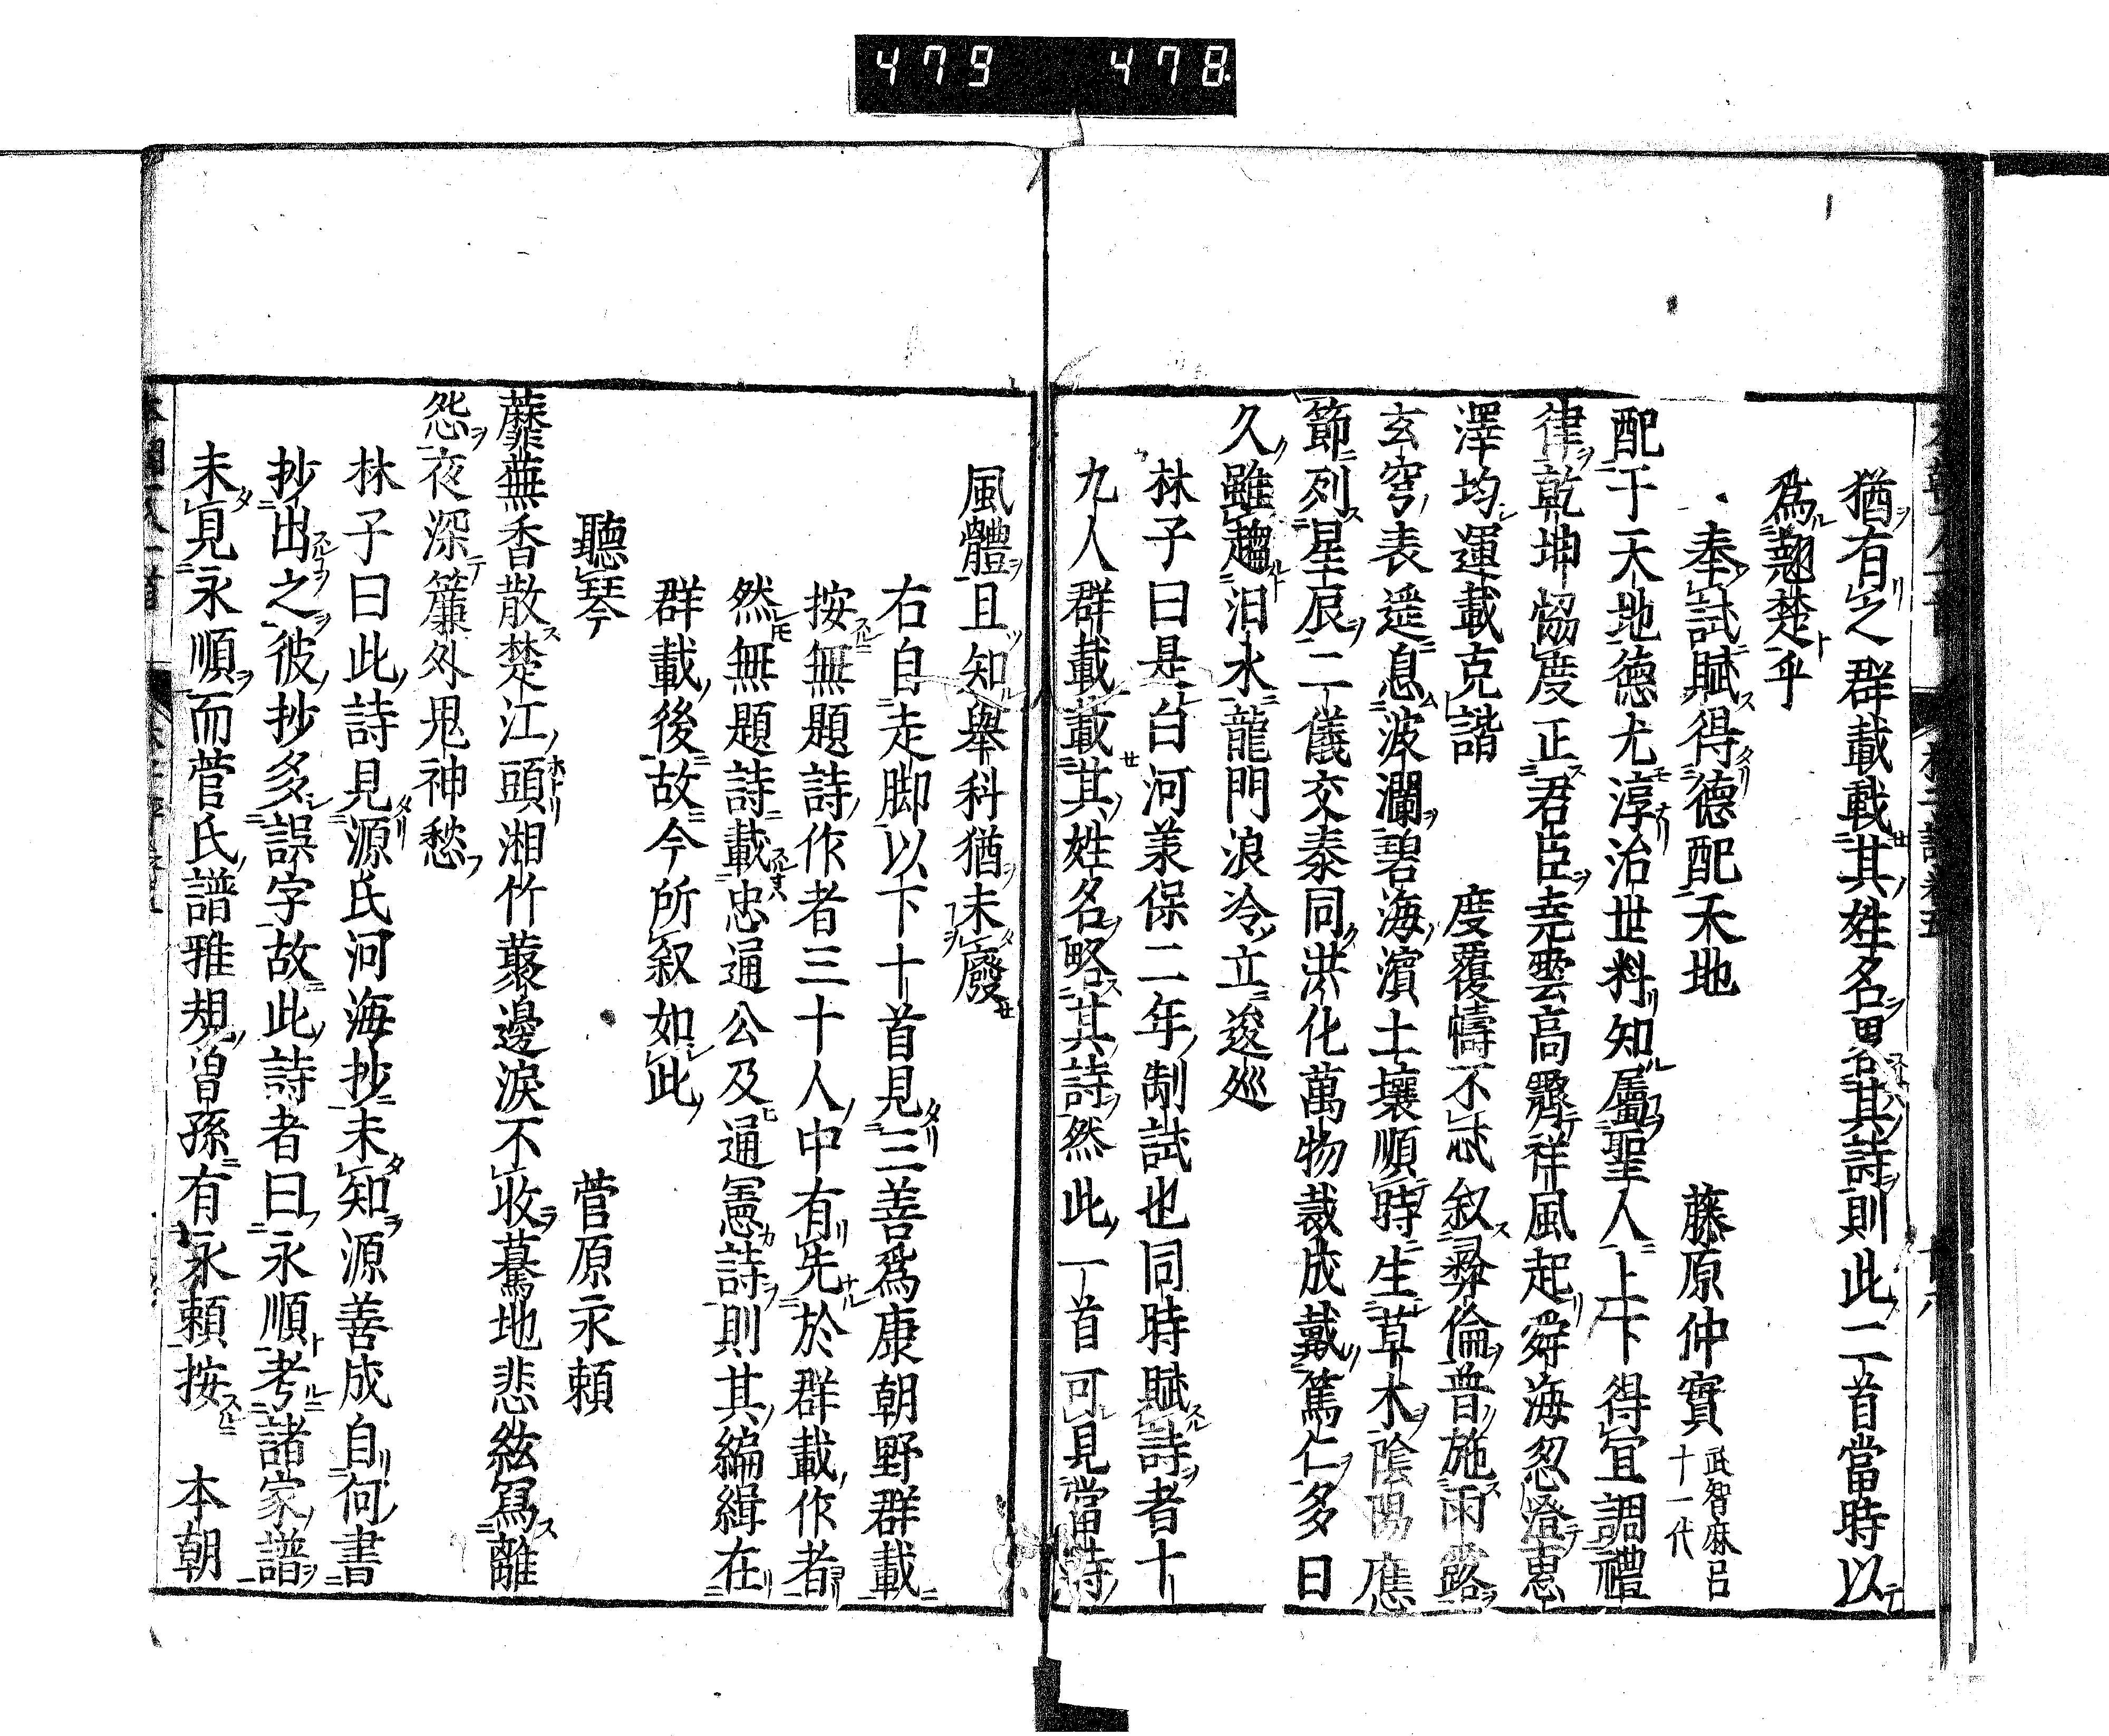 479 478
猶有之群載載其姓名畧其詩則此二首當時以
爲翹楚乎
奉試賦得德配天地 藤原仲實 武智麻呂十一代
配于天地德尤淳治世料知屬聖人上下得宜調禮
律乾坤恊度正君臣堯雲高靄祥風起舜海忽澄惠
澤均運載克諧 度覆幬不忒叙彝倫普施雨露
玄穹表遥息波瀾碧海濱土壤順時生草木陰陽應
節列星辰二儀交泰同洪化萬物裁成戴篤仁多日
久雖趨泪水龍門浪冷立逡巡
林子曰是白河羕保二年制試也同時賦詩者十
九人群載載其姓名略其詩然此一首可見當時
風體且知舉科猶未廢
右自走脚以下十首見三善爲康朝野群載
按無題詩作者三十人中有先於群載作者
然無題詩載忠通公及通憲詩則其編緝在
群載後故今所叙如此
聽琴 菅原永頼
蘼蕪香散楚江頭湘竹叢邊淚不收驀地悲絃寫離
怨夜深簾外鬼神愁
林子曰此詩見源氏河海抄未知源善成自何書
抄出之彼抄多誤字故此詩者曰永順考諸家譜
未見永順而菅氏譜雅規曽孫有永頼按 本朝